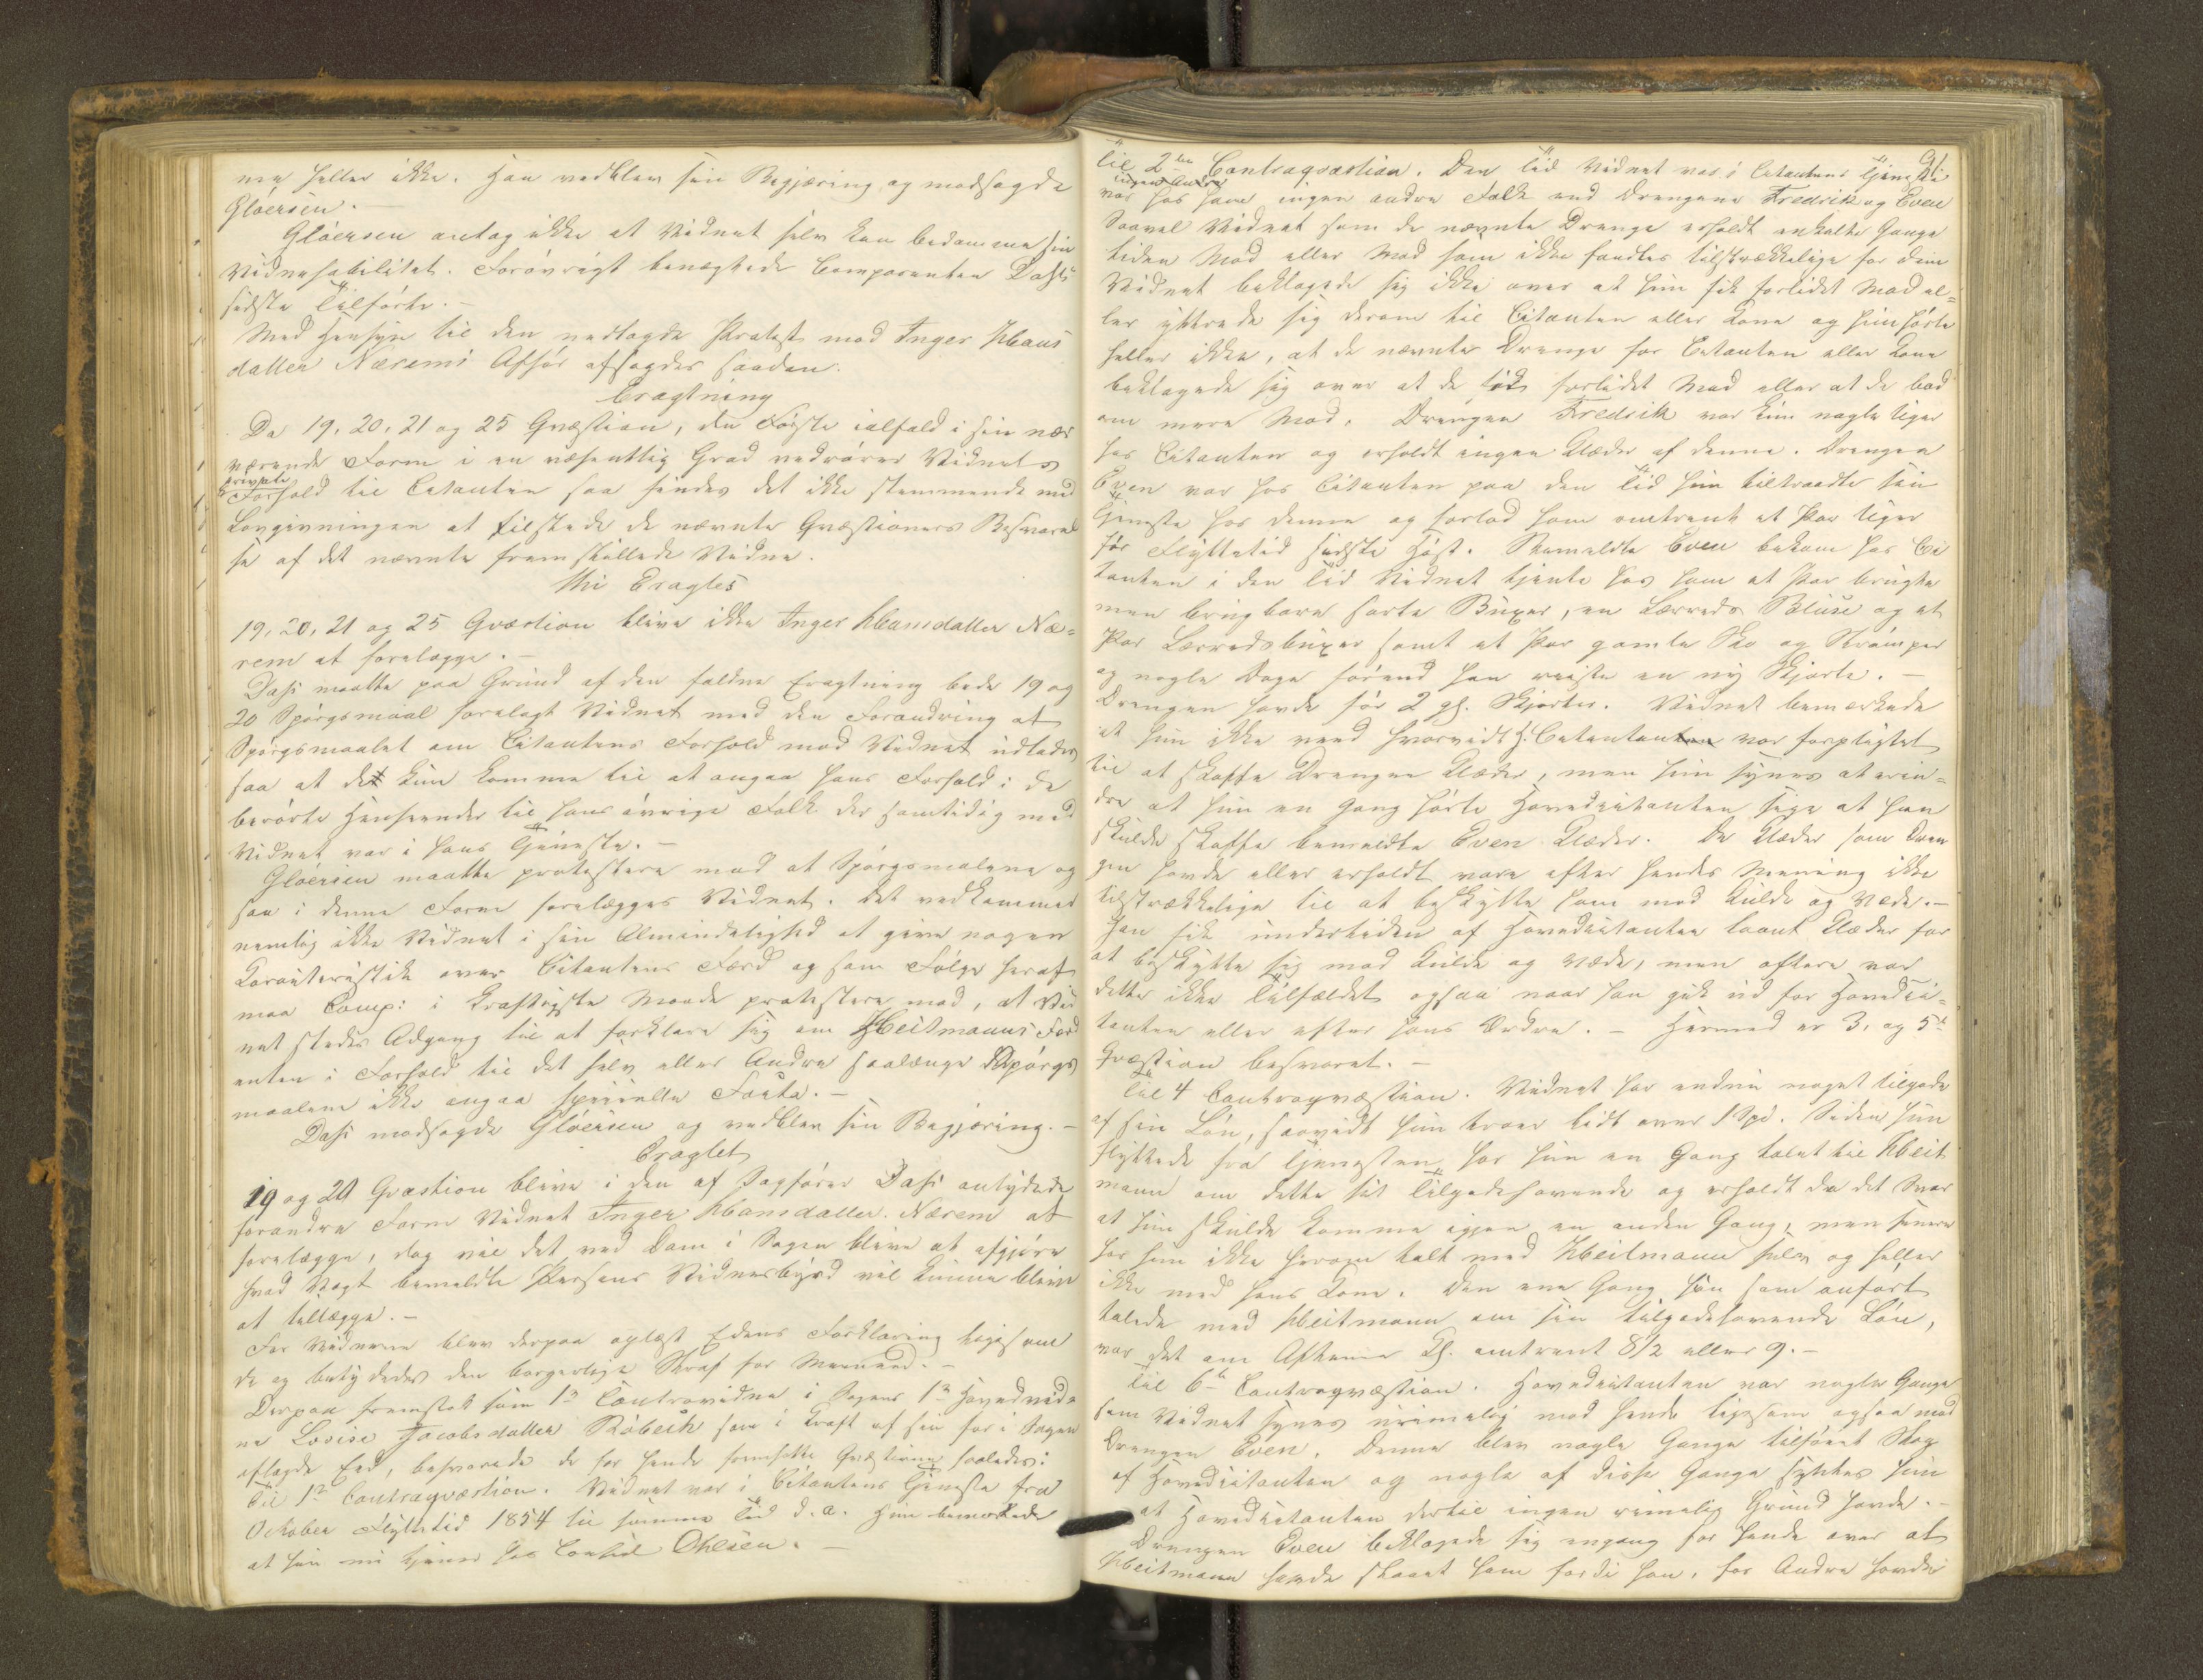 men heller ikke. Han vedblev sin Begjæring og modsagde
Gløersen.
Gløersen antog ikke at Vidnet selv kan bedømme sin
Vidnehabilitet. Forøvrigt benægtede Comparenten Dahls
sidste Tilførte.-
Med Hensyn til den nedlagde Protest mod Inger Hans
datter Nærems Afhør afsagdes saadan
Eragtning
Da 19, 20, 21 og 25 Qvæstion, den Første ialfald i sin nær
værende Form i en væsentlig Grad vedrører Vidnets
private
Forhold til Citanten saa findes det ikke stemmende med
Lovgivningen at tilstede de nævnte Qvæstioners Besvarel
se af det nævnte fremstillede Vidne.
Thi Eragtes
19, 20, 21 og 25 Qvæstion blive ikke Inger Hansdatter Næ=
rem at forelægge.-
Dahl maatte paa Grund af den faldne Eragtning bede 19 og
20 Spørgsmaal forelagt Vidnet med den Forandring at
Spørgsmaalet om Citantens Forhold mod Vidnet udlades
saa at det kun komme til at angaa hans Forhold i de
berørte Henseender til hans øvrige Folk der samtidig med
Vidnet var i hans Tjeneste.-
Gløersen maatte protestere mod at Spørgsmalene og
saa i denne Form forelægges Vidnet. Det vedkommer
nemlig ikke Vidnet i sin Almindelighed at give nogen
Karakteristik over Citantens Færd og som Følge heraf
maa Comp: i kraftigste Maade protestere mod, at Vid
net stedes Adgang til at forklare sig om Heitmanns Færd
enten i Forhold til det selv eller Andre saalænge Spørgs
maalene ikke angaa specielle Facta.-
Dahl modsagde Gløersen og vedblev sin Begjæring.-
Eragtet
19 og 20 Qvæstion blive i den af Sagfører Dahl antydede
forandre Form Vidnet Inger Hansdatter Nærem at
forelægge, dog vil det ved Dom i Sagen blive at afgjøre
hvad Vægt bemeldte Persons Vidnesbyrd vil kunne blive
at tillægge.-
For Vidnerne blev derpaa oplæst Edens Forklaring ligesom
de og betydedes den borgerlige Straf for Meeneed.-
Derpaa fremstod som 1ste Contravidne i Sagens 1ste Hovedvid=
ne Lovise Jacobsdatter Röbech som i Kraft af sin før i Sagen
aflagde Eed, besvarede de for hende fremsatte Qvæstioner saaledes:
Til 1ste Contraqvæstion. Vidnet var i Citantens Tjeneste fra
October Flyttetid 1854 til samme Tid d. A. Hun bemærkede
at hun nu tjener hos Consul Ohlsen.-
91.
Til 2den Contraqvæstion. Den Tid Vidnet var i Citantens Tjeneste
var hos ham ingen andre Folk end Drengene Fredrik og Even
Saavel Vidnet som de nævnte Drenge erholdt enkelte Gange
liden Mad eller Mad som ikke fandtes tilstrækkelige for dem
Vidnet beklagede sig ikke over at hun fik forlidet Mad el=
ler yttrede sig derom til Citanten eller Kone og hun hørte
heller ikke, at de nævnte Drenge for Citanten eller Kone
beklagede sig over at de fik forlidet Mad eller at de bad
om mere Mad. Drengen Fredrik var kun nogle Uger
hos Citanten og erholdt ingen Klæder af denne. Drengen
Even var hos Citanten paa den Tid hun tiltraadte sin
Tjeneste hos denne og forlod ham omtrent et Par Uger
før Flyttetid sidste Høst. Bemeldte Even bekom hos Ci
tanten i den Tid Vidnet tjente hos ham et Par brugte
men brugbare sorte Buxer, en Lærreds Blouse og et
Par Lærredsbuxer samt et Par gamle Sko og Strømper
og nogle Dage førend han reiste en ny Skjorte.-
Drengen havde før 2 gl. Skjorter. Vidnet bemærkede
at hun ikke veed hvorvidt H.Citanten var forpligtet
til at skaffe Drengen Klæder, men hun synes at erin=
dre at hun en Gang hørte Hovedcitanten sige at han
skulde skaffe bemeldte Even Klæder. De Klæder som Dren
gen havde eller erholdt vare efter hendes Mening ikke
tilstrækkelige til at beskytte ham mod Kulde og Væde.-
Han fik undertiden af Hovedcitanten laant Klæder for
at beskytte sig mod Kulde og Væde, men oftere var
dette ikke Tilfældet ogsaa naar han gik ud for Hovedci=
tanten eller efter hans Ordre.- Hermed er 3. og 5te
Qvæstion besvaret.-
Til 4 Contraqvæstion. Vidnet har endnu noget tilgode
af sin Løn, saavidt hun troer lidt over 1 Spd. Siden hun
flyttede fra Tjenesten, har hun en Gang talet til Heit
mann om dette sit Tilgodehavende og erholdt da det Svar
at hun skulde komme igjen en anden Gang, men senere
har hun ikke herom talt med Heitmann selv og heller
ikke med hans Kone. Den ene Gang hun som anført
talede med Heitmann om sin tilgodehavende Løn,
var det om Aftenen Kl. omtrent 8½ eller 9.-
Til 6te Contraqvæstion. Hovedcitanten var nogle Gange
som Vidnet synes urimelig mod hende ligesom ogsaa mod
Drengen Even. Denne blev nogle Gange tilføiet Slag
af Hovedcitanten og nogle af disse Gange syntes hun
at Hovedcitanten dertil ingen rimelig Grund havde.-
Drengen Even beklagede sig engang for hende over at
Heitmann havde slaaet ham fordi han, for Andre havde